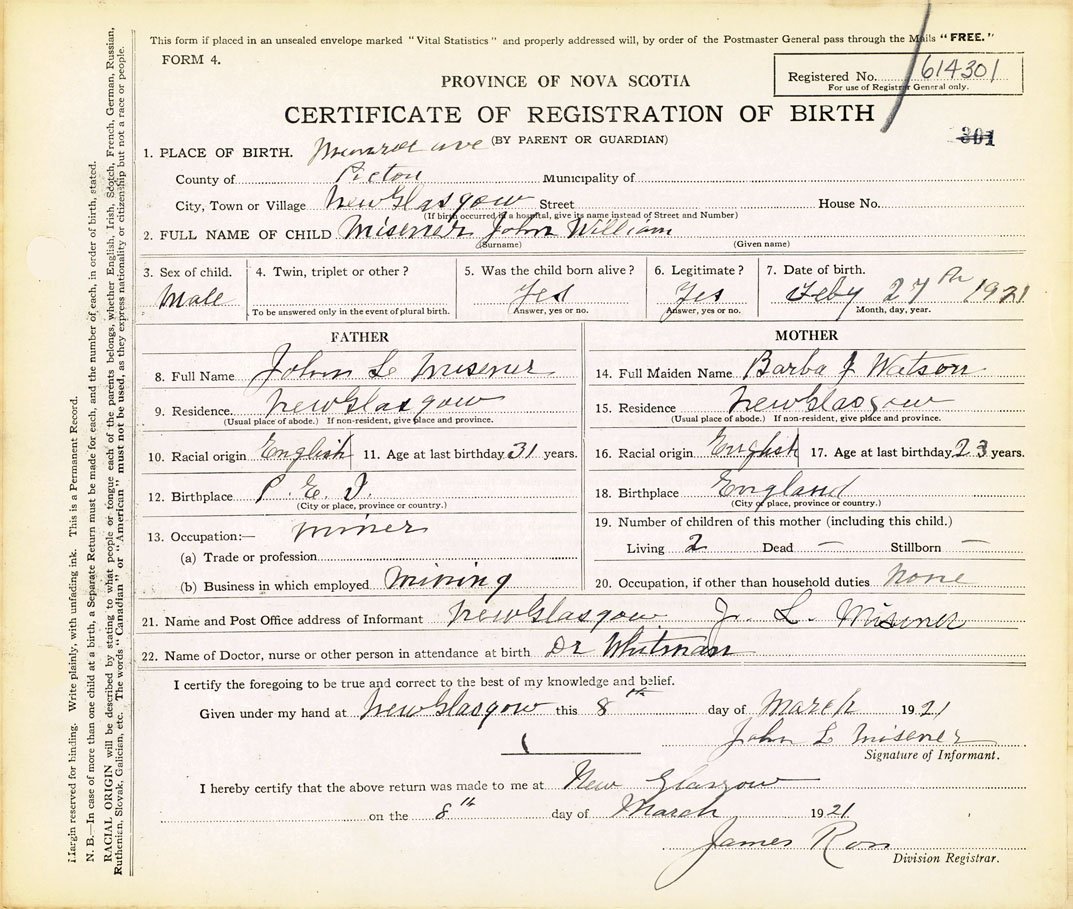 This form if placed in an unsealed envelope marked "Vital Statistics" and properly addressed will, by order of the Postmaster General pass through the Mails "FREE."
FORM 4.
Registered No. 614301
For use of Registrar General only.
PROVINCE OF NOVA SCOTIA
CERTIFICATE OF REGISTRATION OF BIRTH
301
(BY PARENT OR GUARDIAN)
1. PLACE OF BIRTH. ave
County of Pictou Municipality of
City, Town or Village New Glasgow Street House No.
(If birth occurred in a hospital, give its name instead of Street and Number)
2. FULL NAME OF CHILD Misener John William
(Surname) (Given name)
3. Sex of child. 4. Twin, triplet or other? 5. Was the child born alive? 6. Legitimate? 7. Date of birth.
Male Yes Yes Feby 27th 1921
To be answered only in the event of plural birth. Answer, yes or no. Answer, yes or no. Month, day, year.
FATHER
8. Full Name John L Misener
9. Residence. New Glasgow
(Usual place of abode.) If non-resident, give place and province.
10. Racial origin English 11. Age at last birthday 31 years.
12. Birthplace P. E. I.
(City or place, province or country.)
13. Occupation:— miner
(a) Trade or profession
(b) Business in which employed mining
MOTHER
14. Full Maiden Name Barba J Watson
15. Residence New Glasgow
(Usual place of abode.) If non-resident, give place and province.
16. Racial origin English 17. Age at last birthday 23 years.
18. Birthplace England
(City or place, province or country.)
19. Number of children of this mother (including this child.)
Living 2 Dead — Stillborn —
20. Occupation, if other than household duties None
21. Name and Post Office address of Informant New Glasgow J. L. Misener
22. Name of Doctor, nurse or other person in attendance at birth Dr Whitman
I certify the foregoing to be true and correct to the best of my knowledge and belief.
Given under my hand at New Glasgow this 8th day of March 1921
John L Misener
Signature of Informant.
I hereby certify that the above return was made to me at New Glasgow
on the 8th day of March 1921
James
Division Registrar.
Margin reserved for binding. Write plainly, with unfading ink. This is a Permanent Record.
N. B.—In case of more than one child at a birth, a Separate Return must be made for each, and the number of each, in order of birth, stated.
RACIAL ORIGIN will be described by stating to what people or tongue each of the parents belongs, whether English, Irish, Scotch, French, German, Russian,
Ruthenien, Slovak, Galician, etc. The words "Canadian" or "American" must not be used, as they express nationality or citizenship but not a race or people.